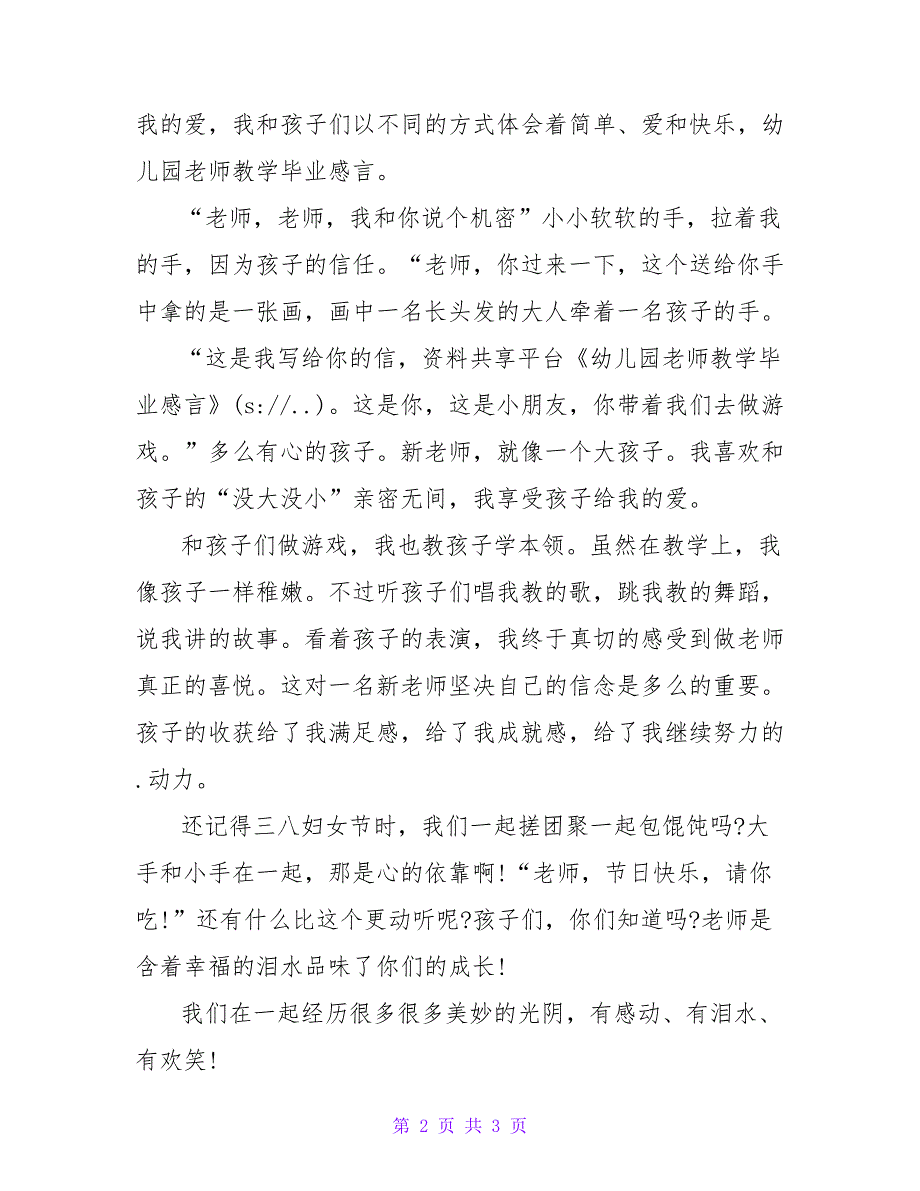 我的爱，我和孩子们以不同的方式体会着简单、爱和快乐，幼
儿园老师教学毕业感言。
“老师，老师，我和你说个机密”小小软软的手，拉着我
的手，因为孩子的信任。“老师，你过来一下，这个送给你手
中拿的是一张画，画中一名长头发的大人牵着一名孩子的手。
“这是我写给你的信，资料共享平台《幼儿园老师教学毕
业感言》(s://..)。这是你，这是小朋友，你带着我们去做游
戏。”多么有心的孩子。新老师，就像一个大孩子。我喜欢和
孩子的“没大没小”亲密无间，我享受孩子给我的爱。
和孩子们做游戏，我也教孩子学本领。虽然在教学上，我
像孩子一样稚嫩。不过听孩子们唱我教的歌，跳我教的舞蹈，
说我讲的故事。看着孩子的表演，我终于真切的感受到做老师
真正的喜悦。这对一名新老师坚决自己的信念是多么的重要。
孩子的收获给了我满足感，给了我成就感，给了我继续努力的
.动力。
还记得三八妇女节时，我们一起搓团聚一起包馄饨吗?大
手和小手在一起，那是心的依靠啊!“老师，节日快乐，请你
吃!”还有什么比这个更动听呢?孩子们，你们知道吗?老师是
含着幸福的泪水品味了你们的成长!
我们在一起经历很多很多美妙的光阴，有感动、有泪水、
有欢笑!
第 2 页 共 3 页